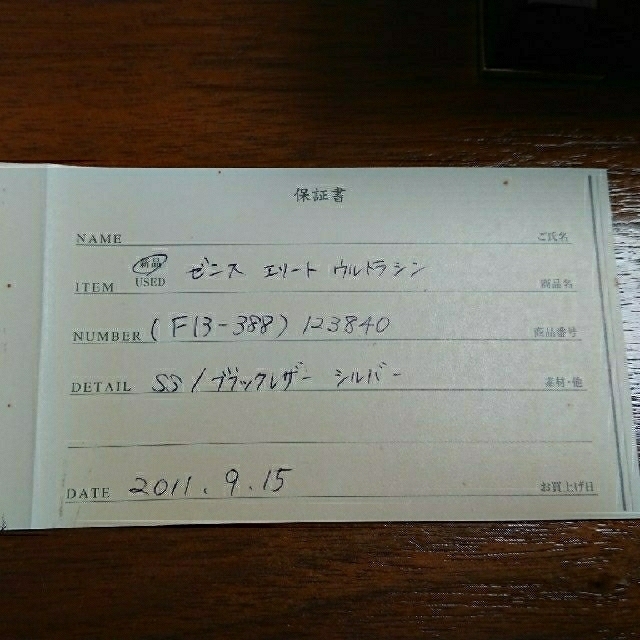 保証書
NAME ご氏名
ITEM 新品 USED ゼニス エリート ウルトラシン 商品名
NUMBER (F13-388) 123840 商品番号
DETAIL SS / ブラックレザー シルバー 素材・他
DATE 2011.9.15 お買上げ日